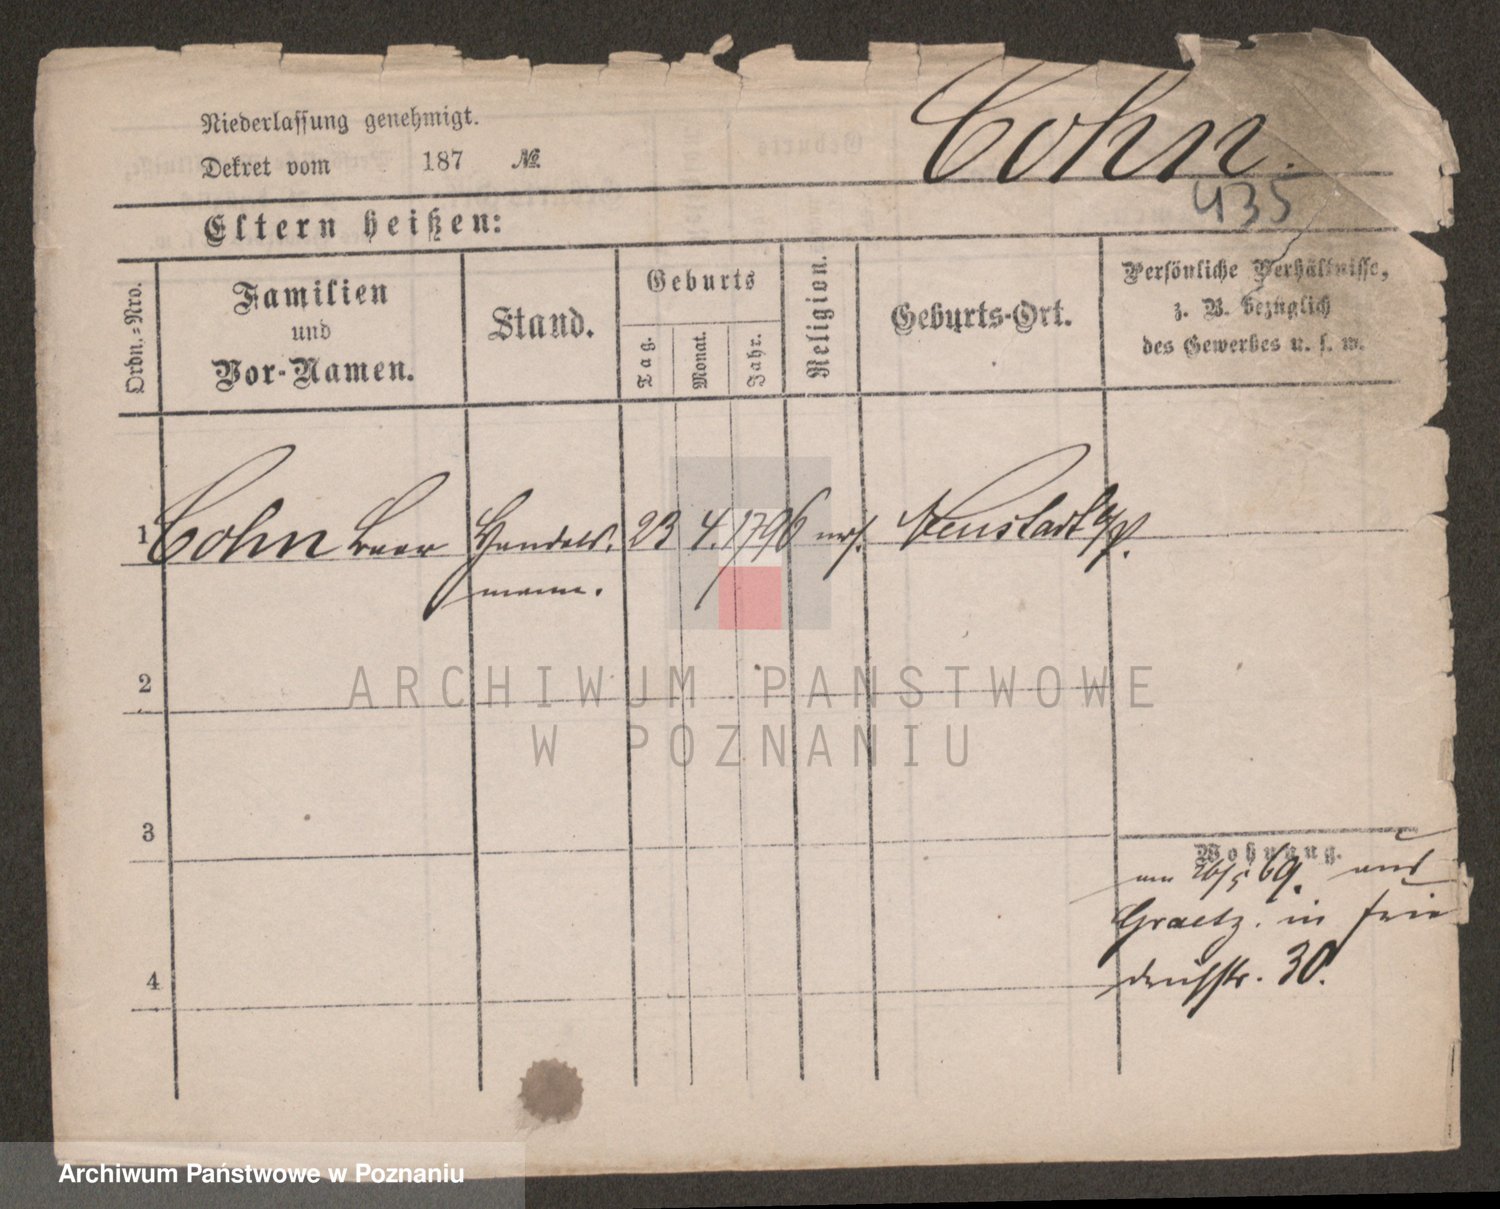 Niederlassung genehmigt.
Dekret vom 187 №
Cohn.
435
Eltern heißen:
Ordn.-Nro.
Familien
und
Vor-Namen.
Stand.
Geburts
Tag.
Monat.
Jahr.
Religion.
Geburts-Ort.
Persönliche Verhältnisse,
z. B. bezüglich
des Gewerbes u. s. w.
1 Cohn Baer Handels- 23 4. 1796 mos. Neustadt a/W.
mann.
2
3
4
Wohnung.
am 26/5 69. aus
Graetz. in Frie
drichstr. 30.
ARCHIWUM PAŃSTWOWE
W POZNANIU
Archiwum Państwowe w Poznaniu